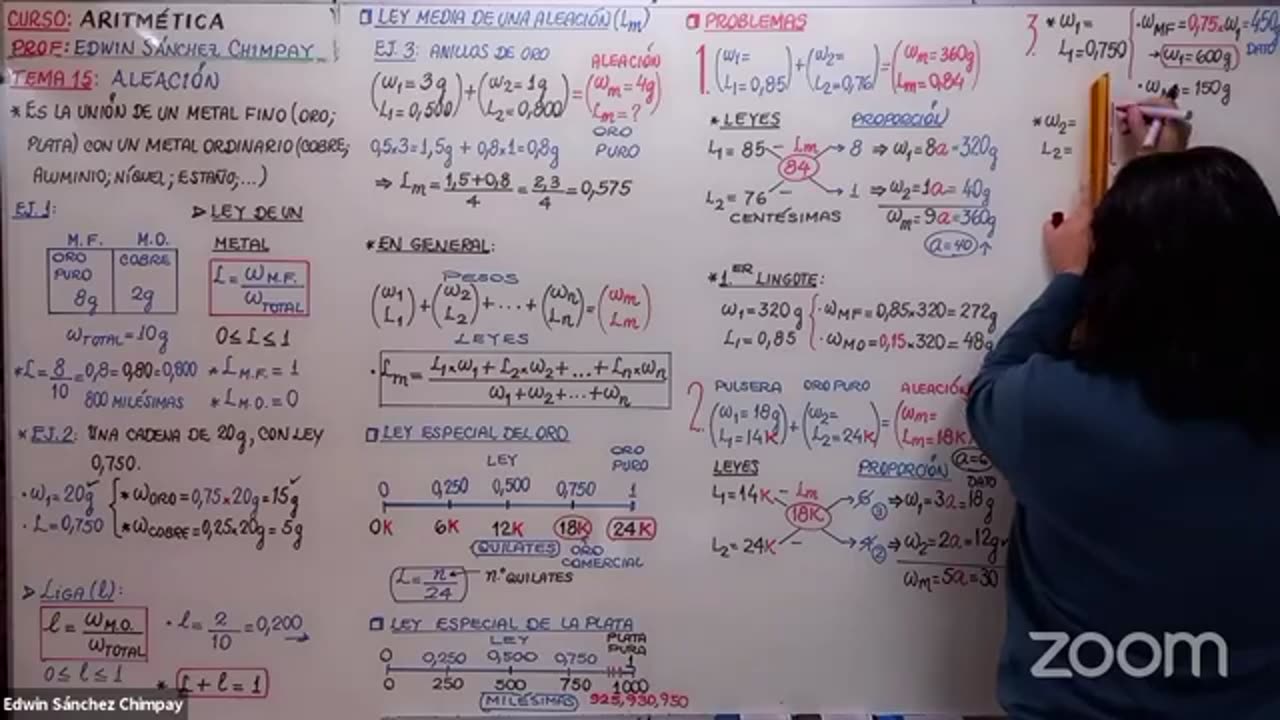 CURSO: ARITMÉTICA
PROF: EDWIN SÁNCHEZ CHIMPAY
TEMA 15: ALEACIÓN
* ES LA UNIÓN DE UN METAL FINO (ORO;
PLATA) CON UN METAL ORDINARIO (COBRE;
ALUMINIO; NÍQUEL; ESTAÑO;...)
EJ. 1:
M.F. M.O.
ORO PURO 8g
COBRE 2g
ω TOTAL = 10g
* L = 8/10 = 0,8 = 0,80 = 0,800
800 MILÉSIMAS
▷ LEY DE UN
METAL
L = ω M.F. / ω TOTAL
0 ≤ L ≤ 1
* L M.F. = 1
* L M.O. = 0
* EJ. 2: UNA CADENA DE 20g, CON LEY
0,750.
· ω1 = 20g
· L = 0,750
* ω ORO = 0,75 × 20g = 15g
* ω COBRE = 0,25 × 20g = 5g
▷ LIGA (l):
l = ω M.O. / ω TOTAL
· l = 2/10 = 0,200
0 ≤ l ≤ 1
* L + l = 1
LEY MEDIA DE UNA ALEACIÓN (Lm)
EJ. 3: ANILLOS DE ORO
ALEACIÓN
(ω1 = 3g L1 = 0,500) + (ω2 = 1g L2 = 0,800) = (ωm = 4g Lm = ?)
ORO
0,5×3 = 1,5g + 0,8×1 = 0,8g PURO
⇒ Lm = (1,5 + 0,8)/4 = 2,3/4 = 0,575
* EN GENERAL:
PESOS
(ω1 L1) + (ω2 L2) + ... + (ωn Ln) = (ωm Lm)
LEYES
· Lm = (L1×ω1 + L2×ω2 + ... + Ln×ωn) / (ω1 + ω2 + ... + ωn)
LEY ESPECIAL DEL ORO
LEY
ORO PURO
0 0,250 0,500 0,750 1
0K 6K 12K 18K 24K
QUILATES ORO COMERCIAL
L = n/24 ← n.° QUILATES
LEY ESPECIAL DE LA PLATA
LEY
PLATA PURA
0 0,250 0,500 0,750 1
0 250 500 750 1000
MILÉSIMAS 925, 930, 950
PROBLEMAS
1. (ω1 = L1 = 0,85) + (ω2 = L2 = 0,76) = (ωm = 360g Lm = 0,84)
* LEYES PROPORCIÓN
L1 = 85 - Lm → 8 ⇒ ω1 = 8a = 320g
84
L2 = 76 - → 1 ⇒ ω2 = 1a = 40g
CENTÉSIMAS ωm = 9a = 360g
a = 40 ↑
* 1.ER LINGOTE:
ω1 = 320g · ωMF = 0,85×320 = 272g
L1 = 0,85 · ωMO = 0,15×320 = 48g
PULSERA ORO PURO ALEACIÓN
2. (ω1 = 18g L1 = 14K) + (ω2 = L2 = 24K) = (ωm = Lm = 18K)
a = 6
LEYES PROPORCIÓN DATO
L1 = 14K - Lm → 6 3 ⇒ ω1 = 3a = 18g
18K
L2 = 24K - → 4 2 ⇒ ω2 = 2a = 12g
ωm = 5a = 30
3. * ω1 = · ωMF = 0,75×ω1 = 450g
L1 = 0,750 → ω1 = 600g DATO
= 150g
* ω2 =
L2 =
zoom
Edwin Sánchez Chimpay